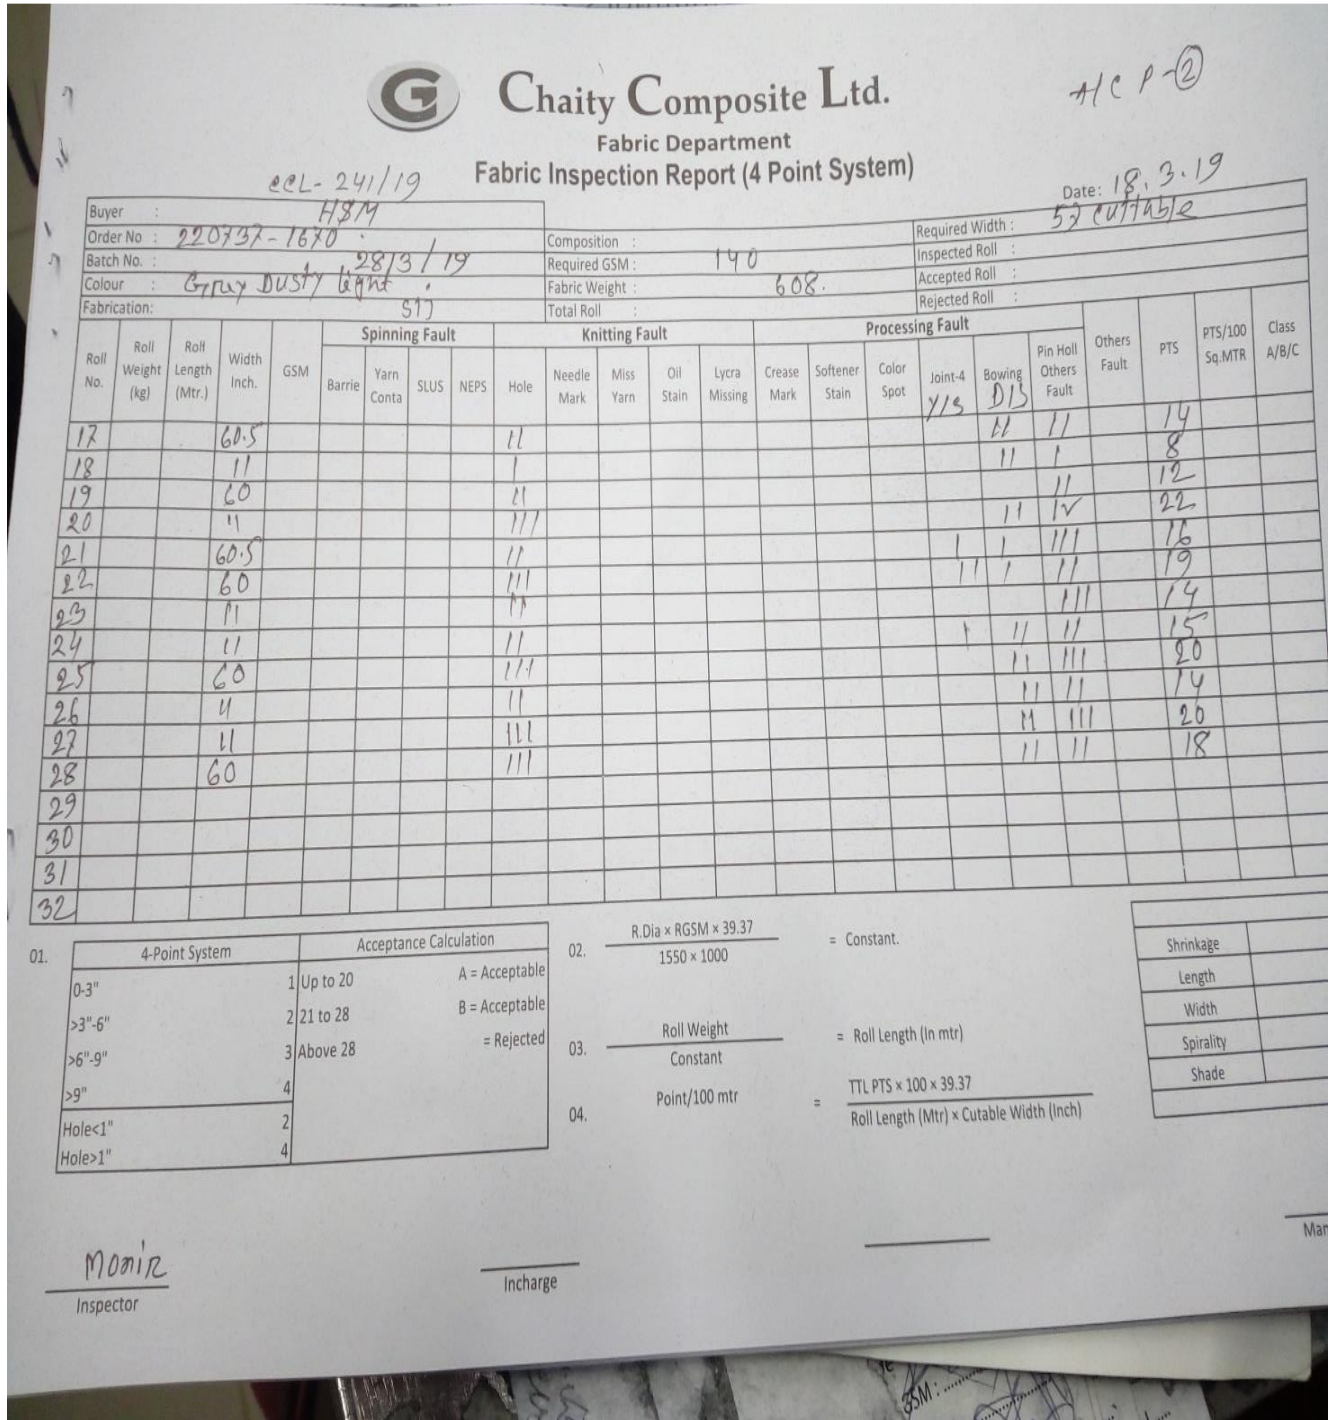 A/C P-②
G Chaity Composite Ltd.
Fabric Department
Fabric Inspection Report (4 Point System)
CCL- 241/19
Date: 18.3.19
Buyer : H&M
Order No : 220737-1670
Batch No. : 28/3/19
Colour : Gray Dusty light
Fabrication: S/J
Composition :
Required GSM : 140
Fabric Weight : 608.
Total Roll :
Required Width : 57 cuttable
Inspected Roll :
Accepted Roll :
Rejected Roll :
Spinning Fault Knitting Fault Processing Fault
Roll No. Roll Weight (kg) Roll Length (Mtr.) Width Inch. GSM Barrie Yarn Conta SLUS NEPS Hole Needle Mark Miss Yarn Oil Stain Lycra Missing Crease Mark Softener Stain Color Spot Joint-4 Y/S Bowing D/S Pin Holl Others Fault Others Fault PTS PTS/100 Sq.MTR Class A/B/C
17 60.5 11 11 11 14
18 11 1 11 1 8
19 60 11 11 12
20 11 111 11 1V 22
21 60.5 11 1 1 111 16
22 60 111 11 1 11 19
23 11 11 111 14
24 11 11 1 11 11 15
25 60 111 11 111 20
26 11 11 11 11 14
27 11 111 11 111 20
28 60 111 11 11 18
29
30
31
32
01.
4-Point System Acceptance Calculation
0-3" 1 Up to 20 A = Acceptable
>3"-6" 2 21 to 28 B = Acceptable
>6"-9" 3 Above 28 = Rejected
>9" 4
Hole<1" 2
Hole>1" 4
02. R.Dia × RGSM × 39.37
1550 × 1000
= Constant.
03. Roll Weight
Constant
= Roll Length (In mtr)
04. Point/100 mtr = TTL PTS × 100 × 39.37
Roll Length (Mtr) × Cutable Width (Inch)
Shrinkage
Length
Width
Spirality
Shade
Monir
Inspector
Incharge
Mar
GSM :